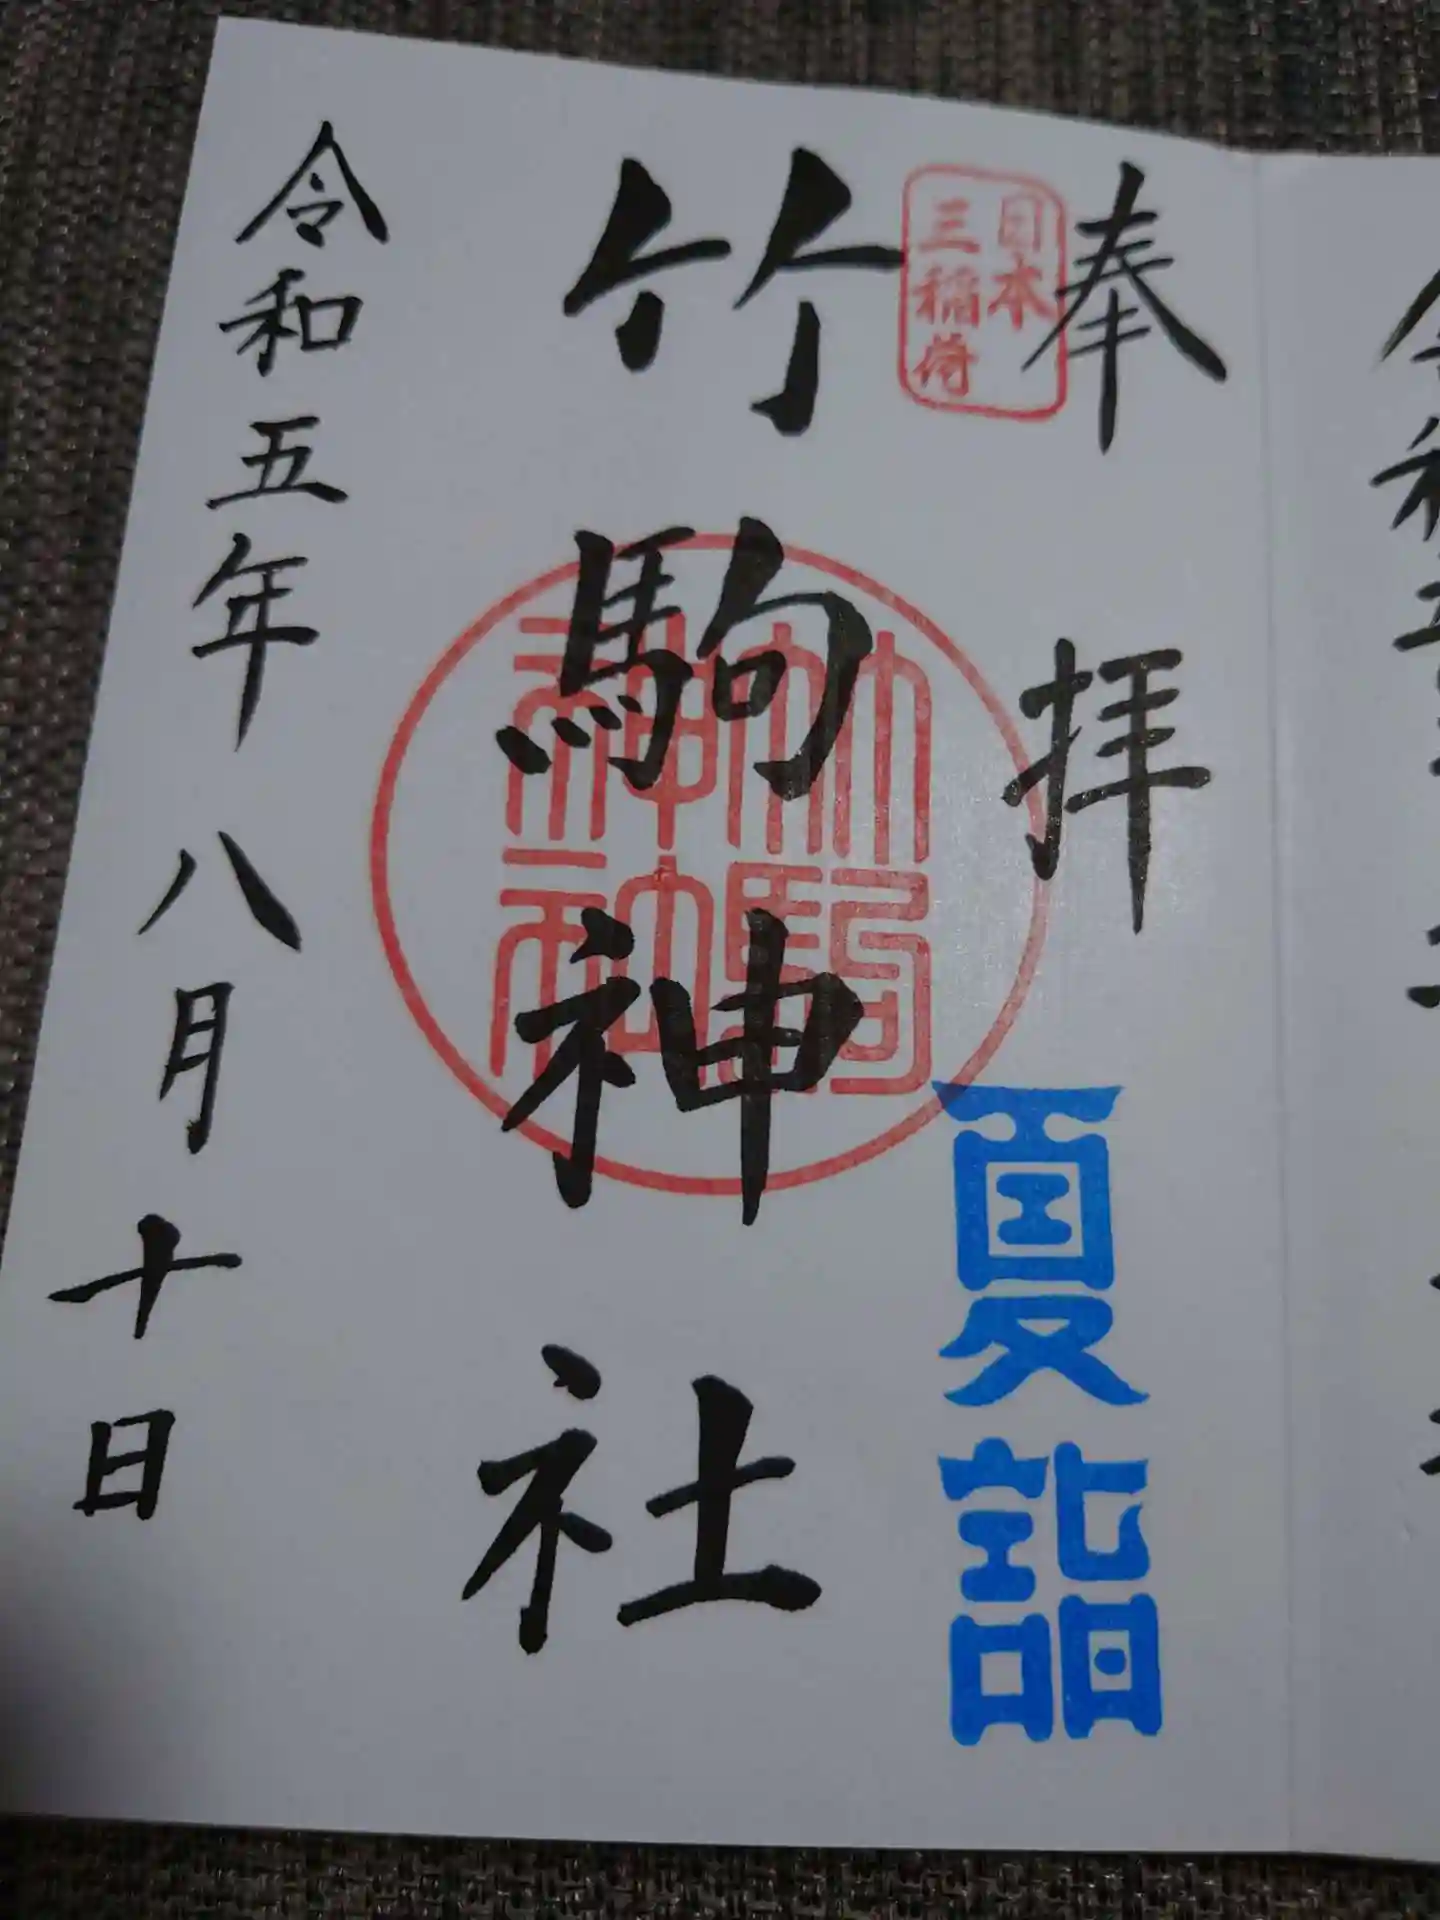 奉拝
日本
三稲荷
夏詣
竹駒神社
竹駒
神社
令和五年八月十日